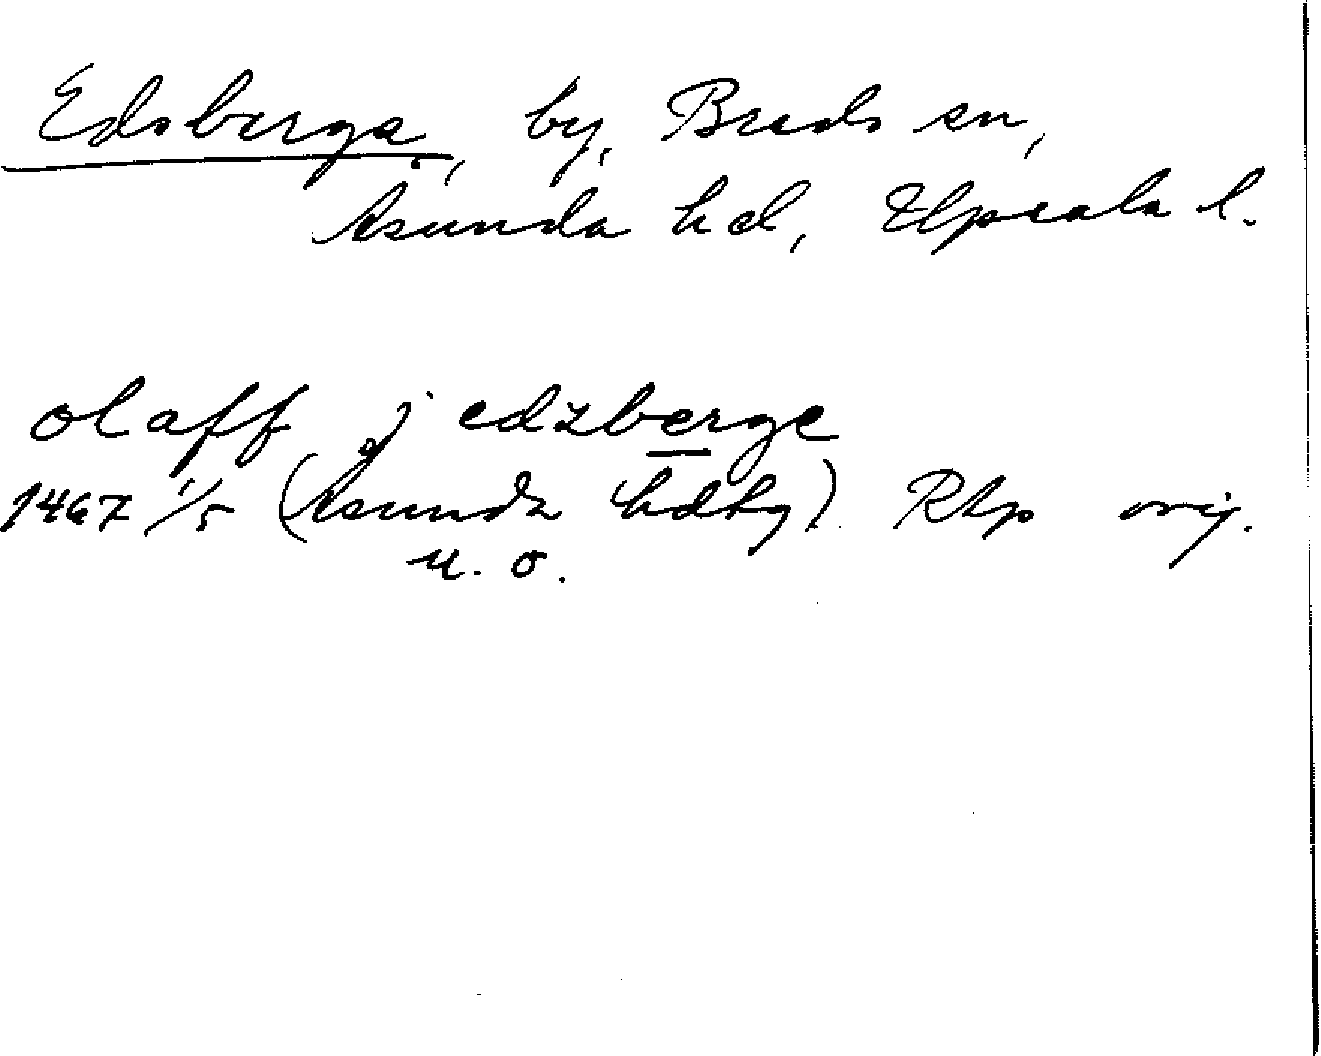 Edsberga, by, Breds sn,
Åsunda hd, Uppsala l.
olaff j edzberge
1467 1/5 (Åsunda hdtg). RAp orig.
u. o.